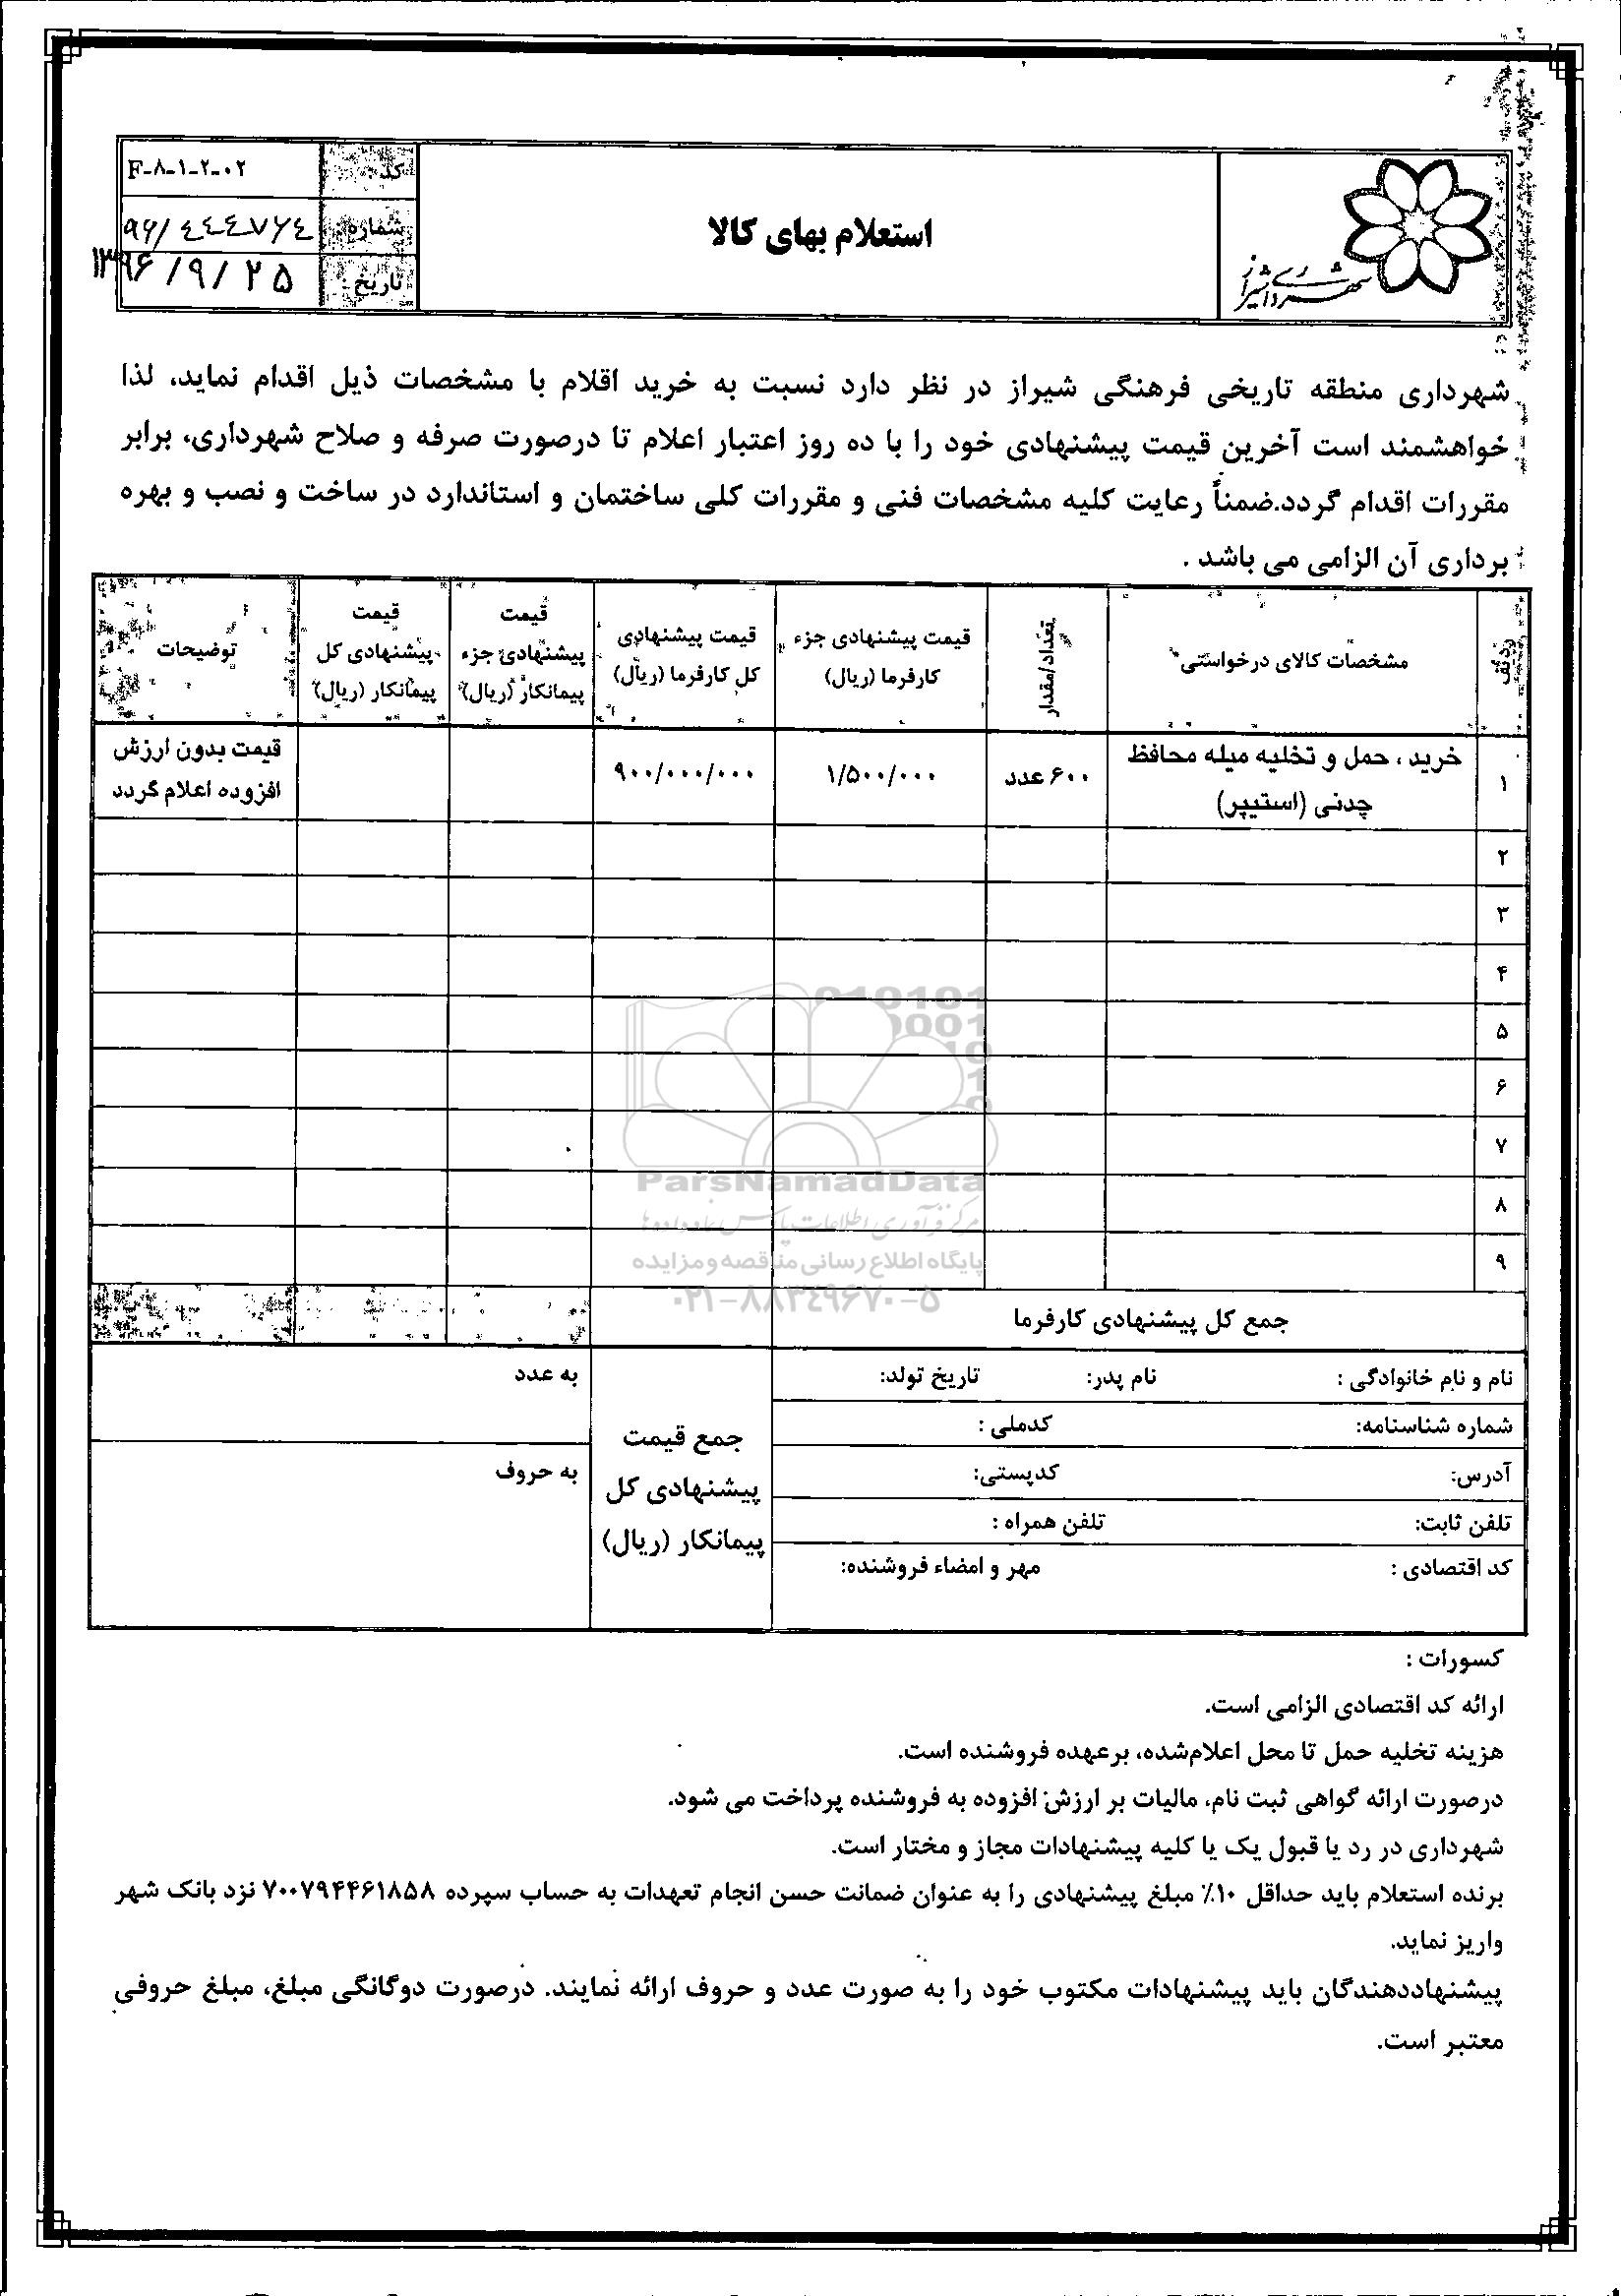 شهرداری شیراز
استعلام بهای کالا
کد
F-۸-۱-۲-۰۲
شماره:
۹۶/۴۴۴۷۶۴
تاریخ:
۱۳۹۶/۹/۲۵
شهرداری منطقه تاریخی فرهنگی شیراز در نظر دارد نسبت به خرید اقلام با مشخصات ذیل اقدام نماید، لذا
خواهشمند است آخرین قیمت پیشنهادی خود را با ده روز اعتبار اعلام تا درصورت صرفه و صلاح شهرداری، برابر
مقررات اقدام گردد.ضمناً رعایت کلیه مشخصات فنی و مقررات کلی ساختمان و استاندارد در ساخت و نصب و بهره
برداری آن الزامی می باشد .
ردیف
مشخصات کالای درخواستی
تعداد/مقدار
قیمت پیشنهادی جزء
کارفرما (ریال)
قیمت پیشنهادی
کل کارفرما (ریال)
قیمت
پیشنهادی جزء
پیمانکار (ریال)
قیمت
پیشنهادی کل
پیمانکار (ریال)
توضیحات
۱
خرید ، حمل و تخلیه میله محافظ
چدنی (استپر)
۶۰۰ عدد
۱/۵۰۰/۰۰۰
۹۰۰/۰۰۰/۰۰۰
قیمت بدون ارزش
افزوده اعلام گردد
۲
۳
۴
۵
۶
۷
۸
۹
010101
0001
10
1
0
ParsNamadData
مرکز فرآوری اطلاعات پارس نماد داده ها
پایگاه اطلاع رسانی مناقصه و مزایده
۰۲۱-۸۸۳۴۹۶۷۰-۵
جمع کل پیشنهادی کارفرما
نام و نام خانوادگی : نام پدر: تاریخ تولد:
شماره شناسنامه: کدملی :
آدرس: کدپستی:
تلفن ثابت: تلفن همراه :
کد اقتصادی : مهر و امضاء فروشنده:
جمع قیمت
پیشنهادی کل
پیمانکار (ریال)
به عدد
به حروف
کسورات :
ارائه کد اقتصادی الزامی است.
هزینه تخلیه حمل تا محل اعلام‌شده، برعهده فروشنده است.
درصورت ارائه گواهی ثبت نام، مالیات بر ارزش افزوده به فروشنده پرداخت می شود.
شهرداری در رد یا قبول یک یا کلیه پیشنهادات مجاز و مختار است.
برنده استعلام باید حداقل ۱۰٪ مبلغ پیشنهادی را به عنوان ضمانت حسن انجام تعهدات به حساب سپرده ۷۰۰۷۹۴۴۶۱۸۵۸ نزد بانک شهر
واریز نماید.
پیشنهاددهندگان باید پیشنهادات مکتوب خود را به صورت عدد و حروف ارائه نمایند. درصورت دوگانگی مبلغ، مبلغ حروفی
معتبر است.